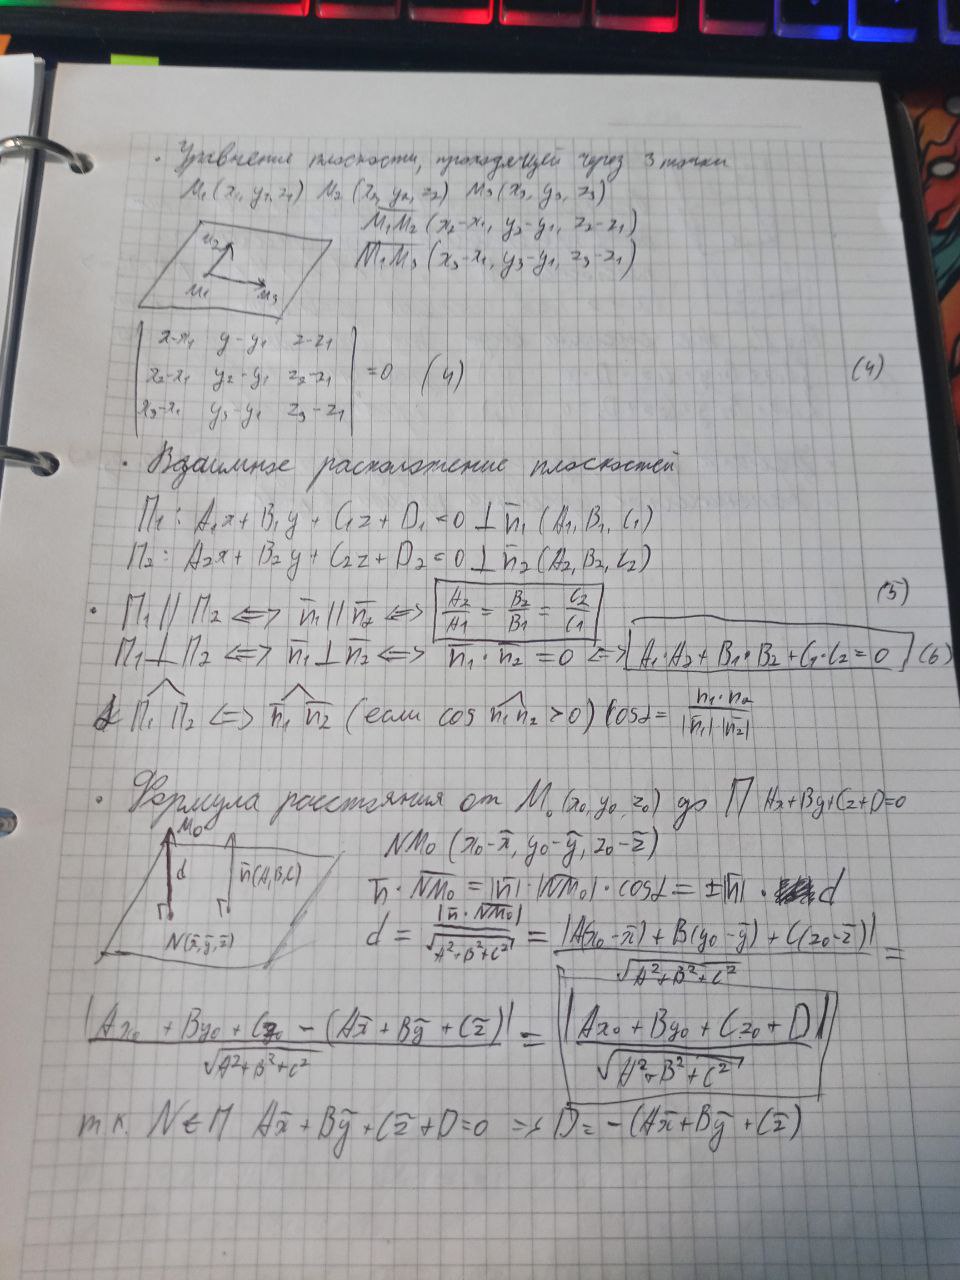 · Уравнения плоскости, проходящей через 3 точки
M₁(x₁, y₁, z₁) M₂(x₂, y₂, z₂) M₃(x₃, y₃, z₃)
M̅₁M̅₂ (x₂-x₁, y₂-y₁, z₂-z₁)
M̅₁M̅₃ (x₃-x₁, y₃-y₁, z₃-z₁)
M₂
M₁ M₃
| x-x₁ y-y₁ z-z₁ |
| x₂-x₁ y₂-y₁ z₂-z₁ | =0 (4) (4)
| x₃-x₁ y₃-y₁ z₃-z₁ |
· Взаимное расположение плоскостей
П₁: A₁x+B₁y+C₁z+D₁=0 ⊥ n̅₁(A₁, B₁, C₁)
П₂: A₂x+B₂y+C₂z+D₂=0 ⊥ n̅₂(A₂, B₂, C₂)
· П₁ || П₂ <=> n̅₁ || n̅₂ <=> A₂/A₁ = B₂/B₁ = C₂/C₁ (5)
П₁ ⊥ П₂ <=> n̅₁ ⊥ n̅₂ <=> n̅₁ · n̅₂ = 0 <=> A₁·A₂+B₁·B₂+C₁·C₂=0 (6)
∠ П₁ П₂ <=> n̅₁ n̅₂ (если cos n₁ n₂ > 0) cosα = n₁·n₂ / |n̅₁|·|n̅₂|
· Формула расстояния от M₀(x₀, y₀, z₀) до П Ax+By+Cz+D=0
M₀
NM₀ (x₀-x̅, y₀-y̅, z₀-z̅)
d n̅(A,B,C)
n̅ · N̅M̅₀ = |n̅|·|N̅M̅₀|·cosα = ±|n̅| · d
N(x̅,y̅,z̅)
d = |n̅ · N̅M̅₀| / √(A²+B²+C²) = |A(x₀-x̅)+B(y₀-y̅)+C(z₀-z̅)| / √(A²+B²+C²) =
|Ax₀+By₀+Cz₀-(Ax̅+By̅+Cz̅)| / √(A²+B²+C²) = |Ax₀+By₀+Cz₀+D| / √(A²+B²+C²)
т.к. N∈П Ax̅+By̅+Cz̅+D=0 => D=-(Ax̅+By̅+Cz̅)